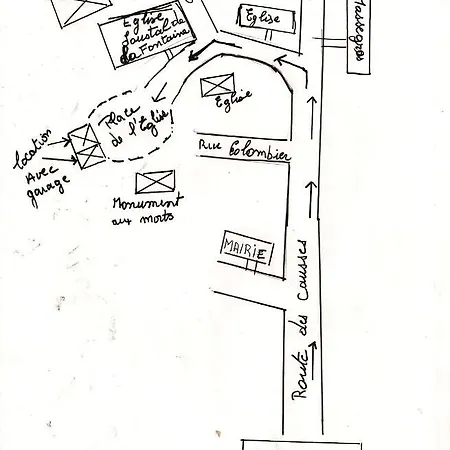 Eglise
Loustal de
La Fontaine
Eglise
Massegros
Place
de l'Eglise
Eglise
location
Avec
garage
Rue Colombier
Monument
aux morts
MAIRIE
Route des Causses